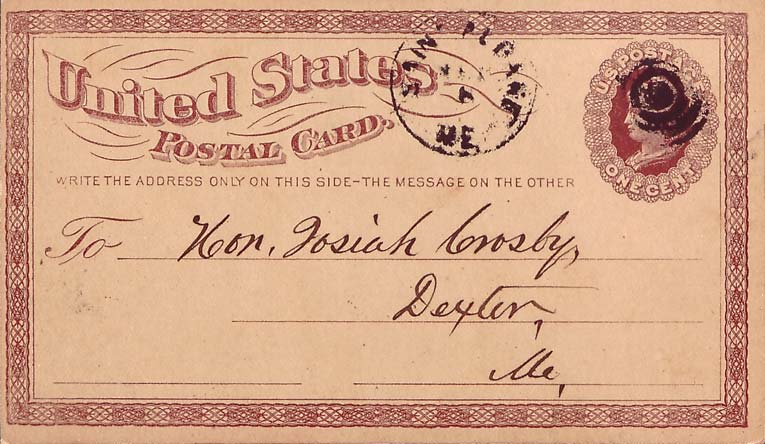 United States
POSTAL CARD.
WRITE THE ADDRESS ONLY ON THIS SIDE-THE MESSAGE ON THE OTHER
U.S. POSTAGE
ONE CENT
SAINT ALBANS
ME
To Hon. Josiah Crosby,
Dexter,
Me.